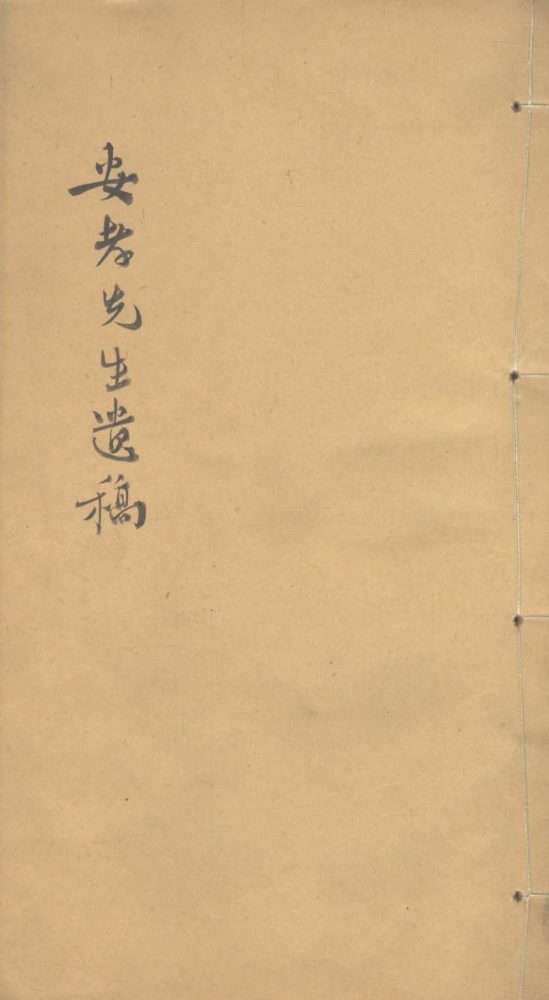 安孝先生遺稿